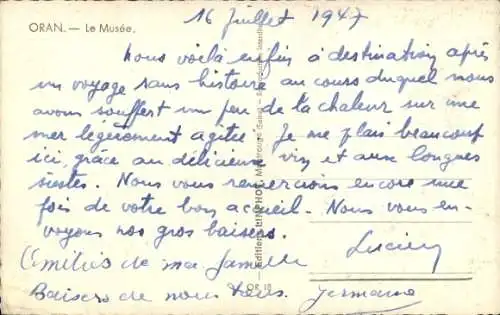 16 Juillet 1947
ORAN. — Le Musée.
Nous voilà enfin à destination après
un voyage sans histoire au cours duquel nous
avons souffert un peu de la chaleur sur une
mer légèrement agitée. Je me plais beaucoup
ici, grâce au délicieux vin et aux longues
siestes. Nous vous remercions encore une
fois de votre bon accueil. Nous vous en-
voyons nos gros baisers.
Lucien
Amitiés de ma famille
Baisers de nous tous. Germaine
OR 18